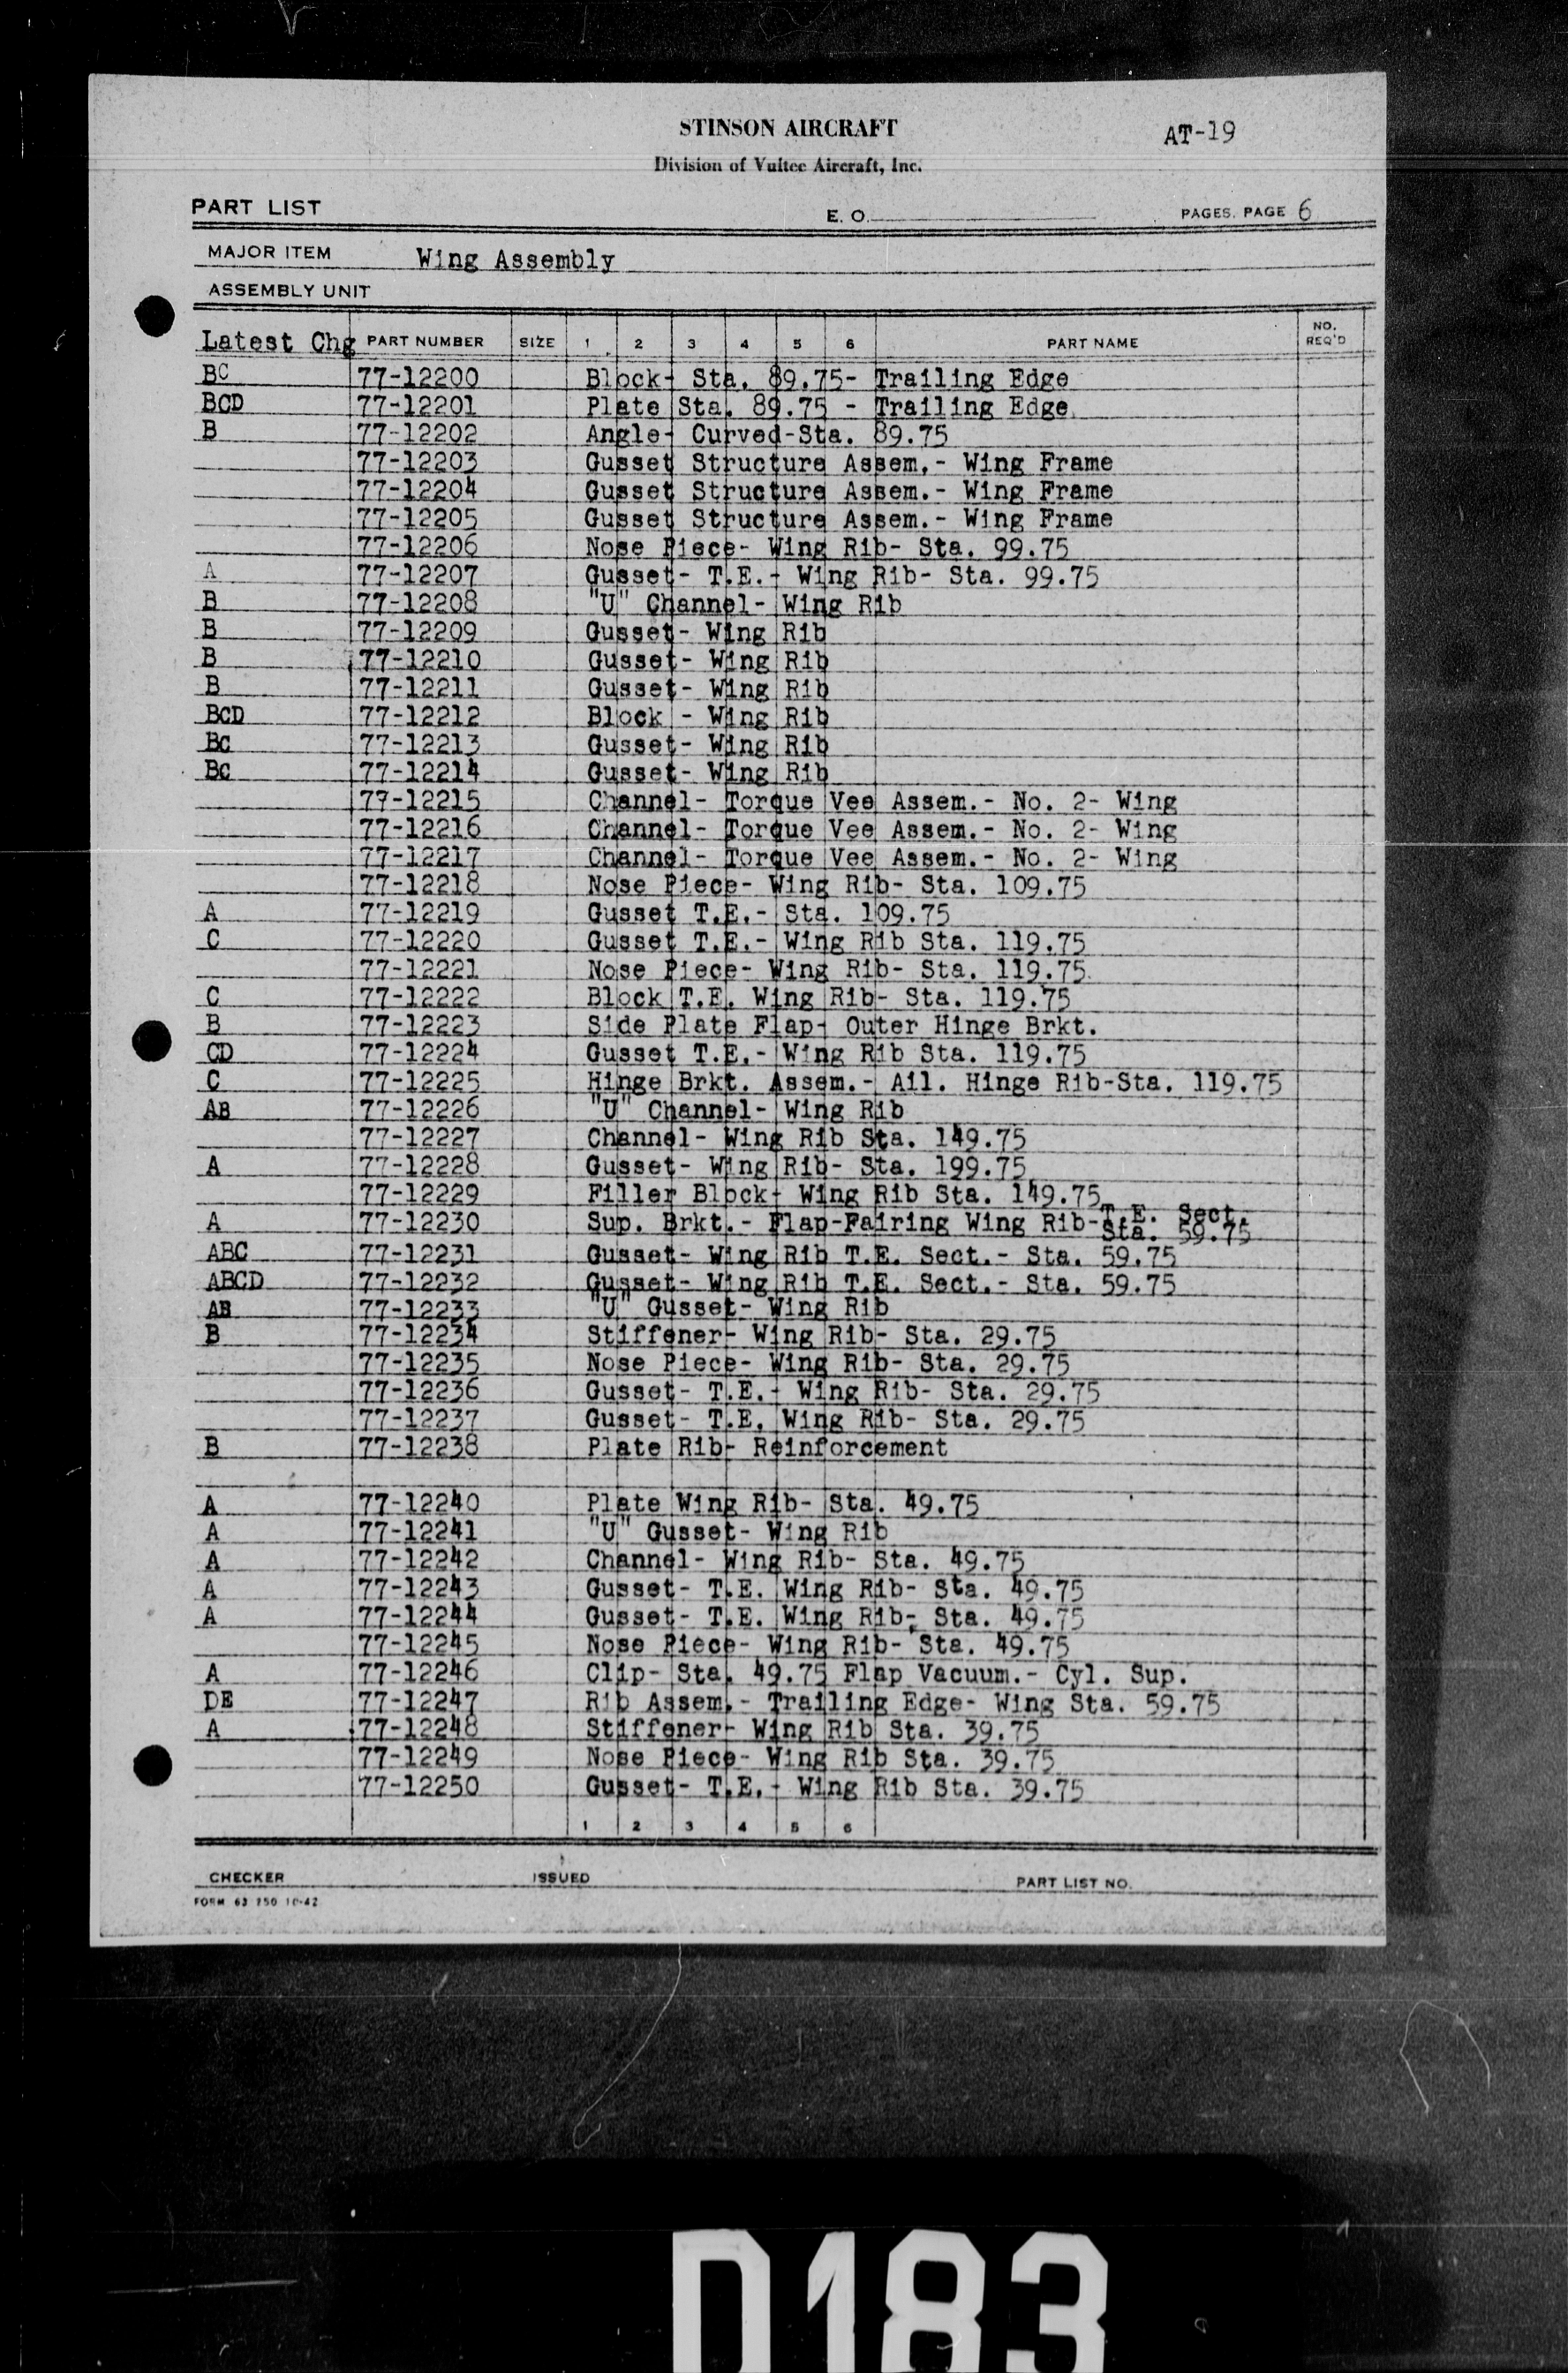 STINSON AIRCRAFT
AT-19
Division of Vultee Aircraft, Inc.
PART LIST E. O. PAGES. PAGE 6
MAJOR ITEM Wing Assembly
ASSEMBLY UNIT
Latest Chg PART NUMBER SIZE 1 2 3 4 5 6 PART NAME NO. REQ'D
BC 77-12200 Block- Sta. 89.75- Trailing Edge
BCD 77-12201 Plate Sta. 89.75 - Trailing Edge
B 77-12202 Angle- Curved-Sta. 89.75
77-12203 Gusset Structure Assem.- Wing Frame
77-12204 Gusset Structure Assem.- Wing Frame
77-12205 Gusset Structure Assem.- Wing Frame
77-12206 Nose Piece- Wing Rib- Sta. 99.75
A 77-12207 Gusset- T.E.- Wing Rib- Sta. 99.75
B 77-12208 "U" Channel- Wing Rib
B 77-12209 Gusset- Wing Rib
B 77-12210 Gusset- Wing Rib
B 77-12211 Gusset- Wing Rib
BCD 77-12212 Block - Wing Rib
BC 77-12213 Gusset- Wing Rib
BC 77-12214 Gusset- Wing Rib
77-12215 Channel- Torque Vee Assem.- No. 2- Wing
77-12216 Channel- Torque Vee Assem.- No. 2- Wing
77-12217 Channel- Torque Vee Assem.- No. 2- Wing
77-12218 Nose Piece- Wing Rib- Sta. 109.75
A 77-12219 Gusset T.E.- Sta. 109.75
C 77-12220 Gusset T.E.- Wing Rib Sta. 119.75
77-12221 Nose Piece- Wing Rib- Sta. 119.75
C 77-12222 Block T.E. Wing Rib- Sta. 119.75
B 77-12223 Side Plate Flap- Outer Hinge Brkt.
CD 77-12224 Gusset T.E.- Wing Rib Sta. 119.75
C 77-12225 Hinge Brkt. Assem.- Ail. Hinge Rib-Sta. 119.75
AB 77-12226 "U" Channel- Wing Rib
77-12227 Channel- Wing Rib Sta. 149.75
A 77-12228 Gusset- Wing Rib- Sta. 199.75
77-12229 Filler Block- Wing Rib Sta. 149.75
A 77-12230 Sup. Brkt.- Flap-Fairing Wing Rib-T.E. Sect. Sta. 59.75
ABC 77-12231 Gusset- Wing Rib T.E. Sect.- Sta. 59.75
ABCD 77-12232 Gusset- Wing Rib T.E. Sect.- Sta. 59.75
AB 77-12233 "U" Gusset- Wing Rib
B 77-12234 Stiffener- Wing Rib- Sta. 29.75
77-12235 Nose Piece- Wing Rib- Sta. 29.75
77-12236 Gusset- T.E.- Wing Rib- Sta. 29.75
77-12237 Gusset- T.E. Wing Rib- Sta. 29.75
B 77-12238 Plate Rib- Reinforcement
A 77-12240 Plate Wing Rib- Sta. 49.75
A 77-12241 "U" Gusset- Wing Rib
A 77-12242 Channel- Wing Rib- Sta. 49.75
A 77-12243 Gusset- T.E. Wing Rib- Sta. 49.75
A 77-12244 Gusset- T.E. Wing Rib- Sta. 49.75
77-12245 Nose Piece- Wing Rib- Sta. 49.75
A 77-12246 Clip- Sta. 49.75 Flap Vacuum.- Cyl. Sup.
DE 77-12247 Rib Assem.- Trailing Edge- Wing Sta. 59.75
A 77-12248 Stiffener- Wing Rib Sta. 39.75
77-12249 Nose Piece- Wing Rib Sta. 39.75
77-12250 Gusset- T.E.- Wing Rib Sta. 39.75
1 2 3 4 5 6
CHECKER ISSUED PART LIST NO.
FORM 63 750 10-42
D183